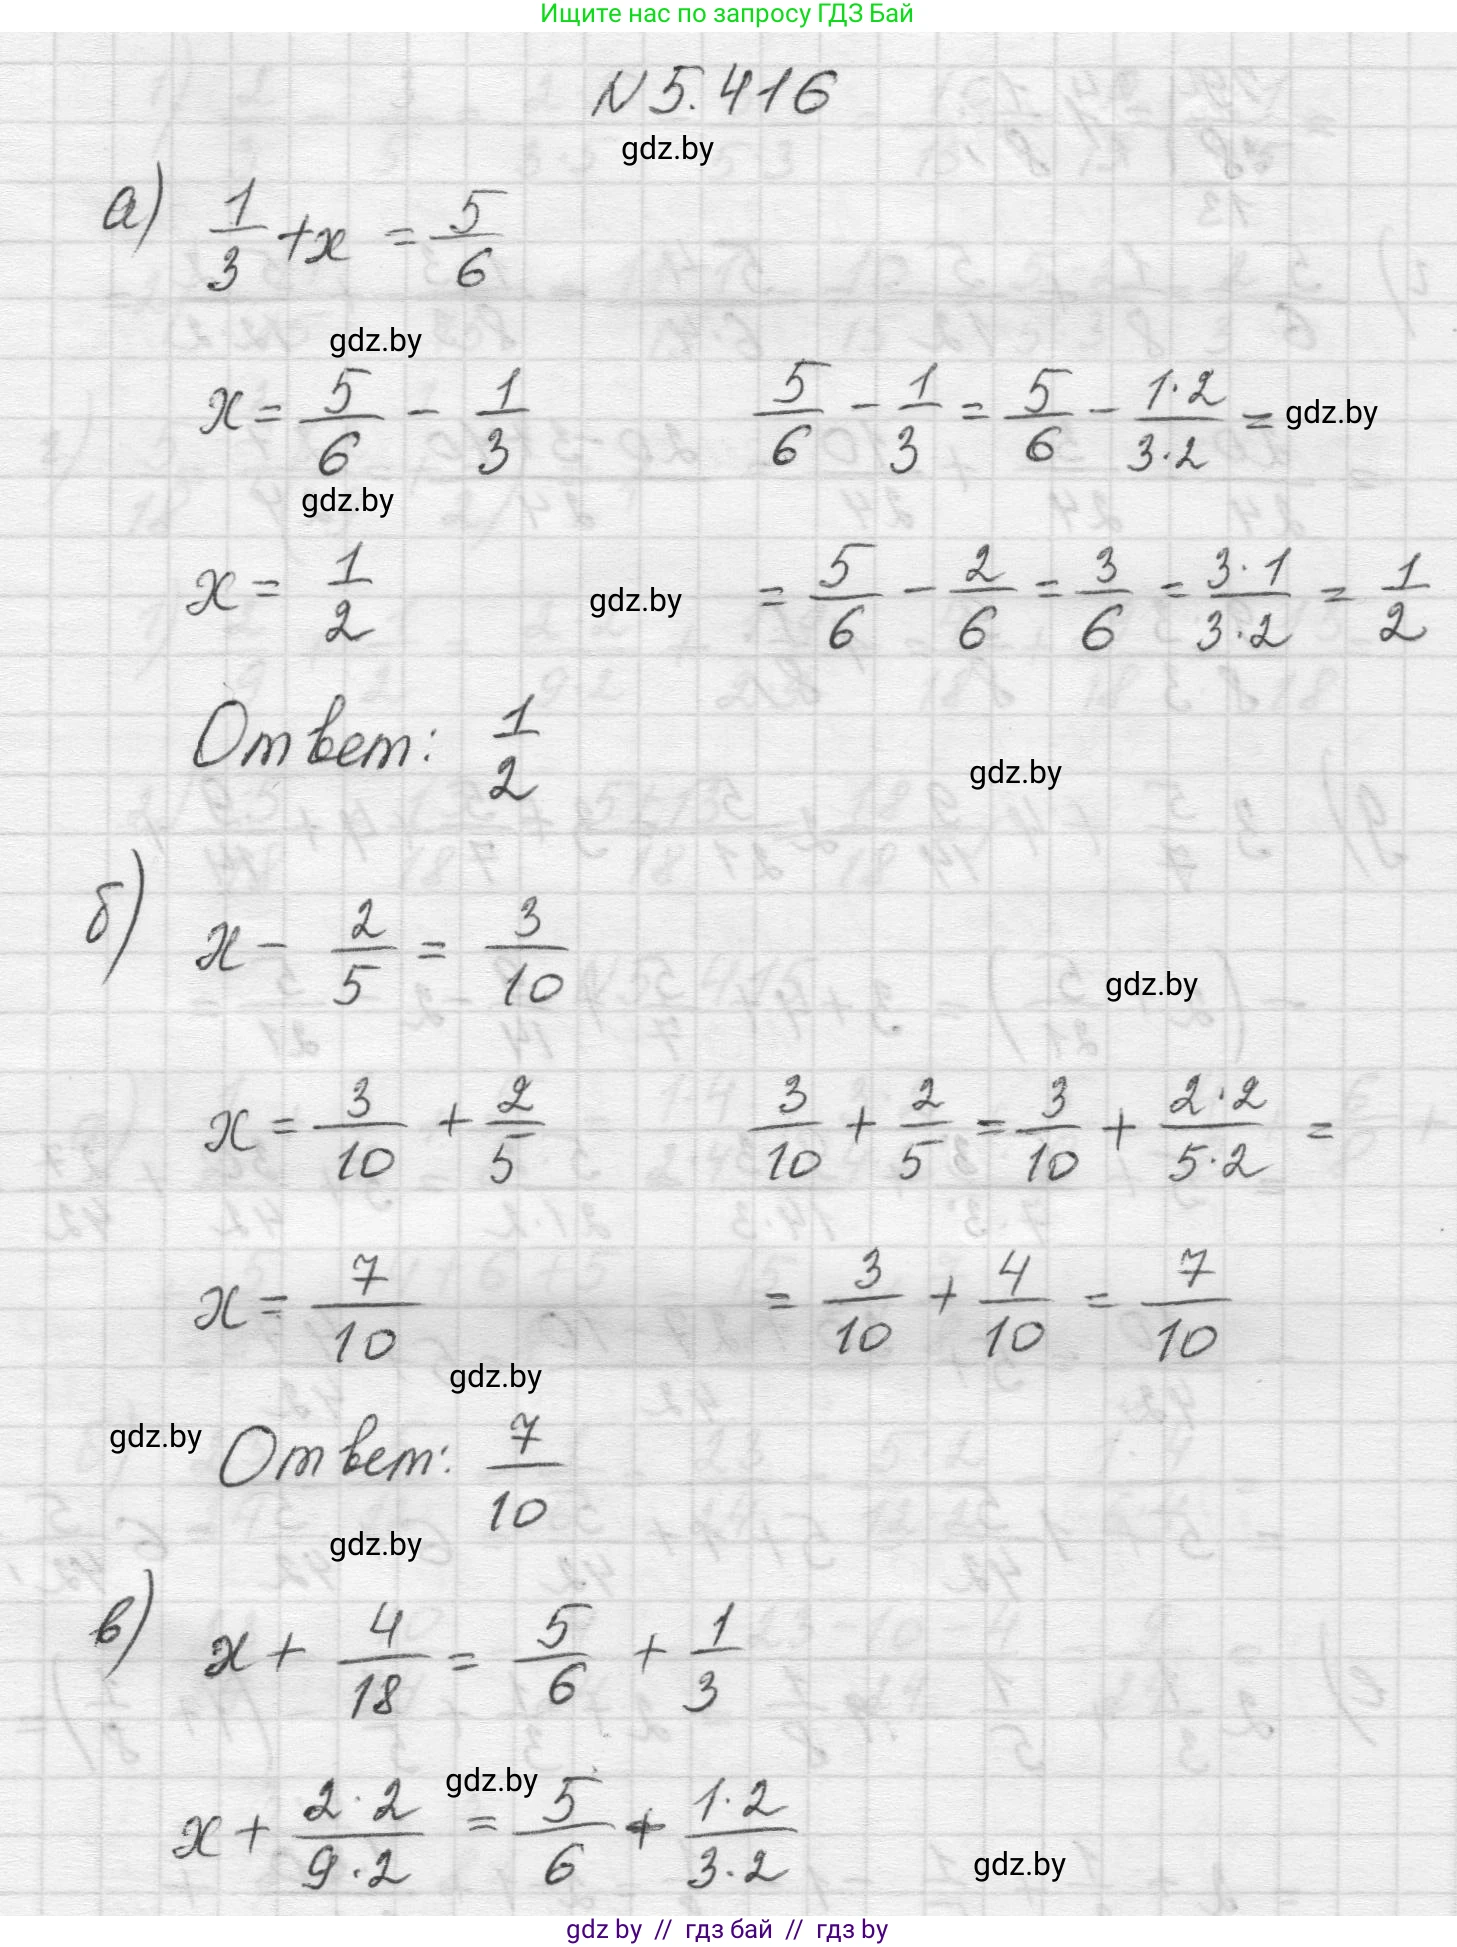 Ищите нас по запросу ГДЗ Бай
N 5.416
gdz.by
а) 1/3 + x = 5/6
gdz.by
x = 5/6 - 1/3    5/6 - 1/3 = 5/6 - 1·2/3·2 = gdz.by
gdz.by
x = 1/2    gdz.by    = 5/6 - 2/6 = 3/6 = 3·1/3·2 = 1/2
Ответ: 1/2
gdz.by
б) x - 2/5 = 3/10
gdz.by
x = 3/10 + 2/5    3/10 + 2/5 = 3/10 + 2·2/5·2 =
x = 7/10    = 3/10 + 4/10 = 7/10
gdz.by
gdz.by Ответ: 7/10
gdz.by
в) x + 4/18 = 5/6 + 1/3
gdz.by
x + 2·2/9·2 = 5/6 + 1·2/3·2
gdz.by
gdz by // гдз бай // гдз by